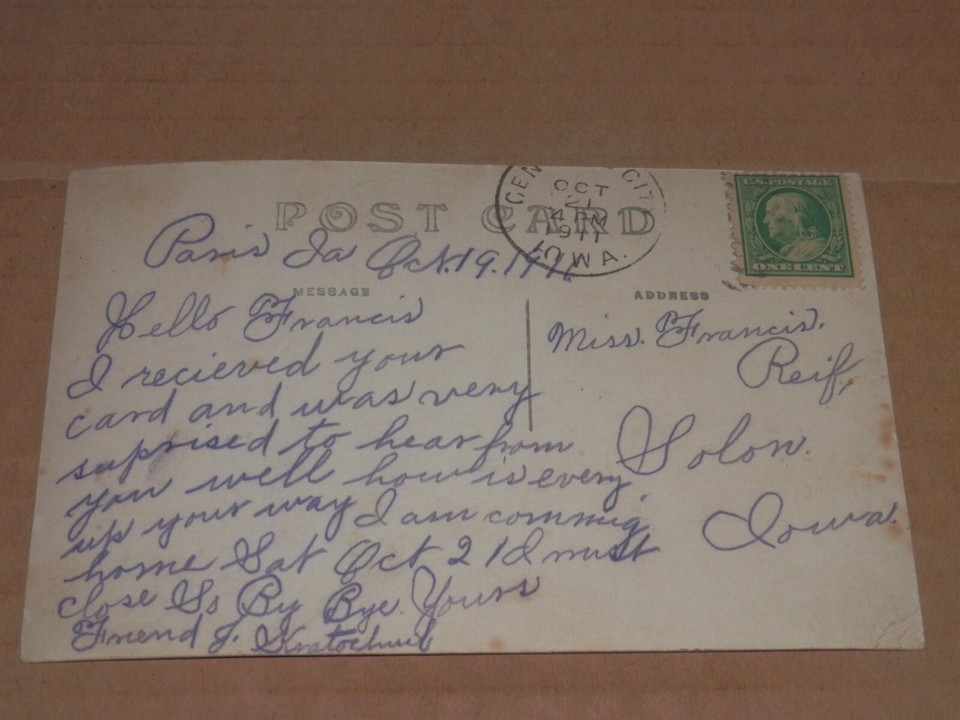 POST CARD
CEN CITY
OCT
21
4 PM
1911
IOWA.
U.S. POSTAGE
ONE CENT
Paris Ia Oct. 19. 1911
MESSAGE
Hello Francis
I recieved your
card and was very
suprised to hear from
you well how is every
up your way I am commig
home Sat Oct 21 I must
close So By Bye. Yours
Friend J. Kratochvil
ADDRESS
Miss. Francis.
Reif,
Solon.
Iowa.